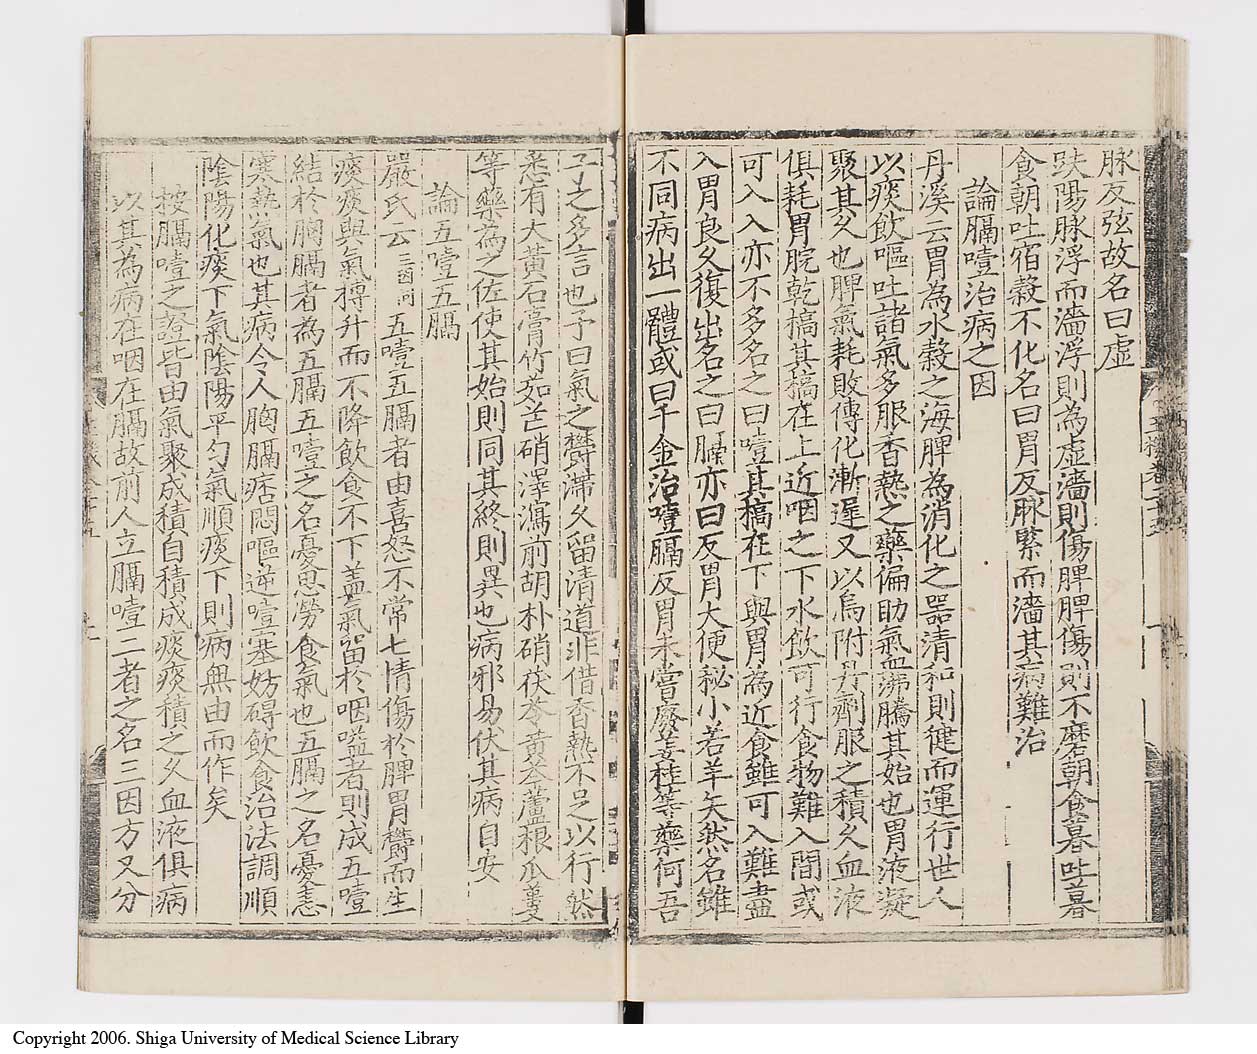 脉反弦故名曰虛
趺陽脉浮而濇浮則為虛濇則傷脾脾傷則不磨朝食暮吐暮
食朝吐宿穀不化名曰胃反脉緊而濇其病難治
論膈噎治病之因
丹溪云胃為水穀之海脾為消化之器清和則健而運行世人
以痰飲嘔吐諸氣多服香熱之藥偏助氣血沸騰其始也胃液凝
聚其久也脾氣耗敗傳化漸遲又以烏附丹劑服之積久血液
俱耗胃脘乾槁其槁在上近咽之下水飲可行食物難入間或
可入入亦不多名之曰噎其槁在下與胃為近食雖可入難盡
入胃良久復出名之曰膈亦曰反胃大便秘小若羊矢然名雖
不同病出一體或曰千金治噎膈反胃未嘗廢姜桂等藥何吾
子之多言也予曰氣之欝滯久留清道非借香熱不足以行然
悉有大黃石膏竹茹芒硝澤瀉前胡朴硝茯苓黃芩蘆根瓜蔞
等藥為之佐使其始則同其終則異也病邪易伏其病自安
論五噎五膈
嚴氏云三因同五噎五膈者由喜怒不常七情傷於脾胃欝而生
痰痰與氣搏升而不降飲食不下盖氣留於咽嗌者則成五噎
結於胸膈者為五膈五噎之名憂思勞食氣也五膈之名憂恚
寒熱氣也其病令人胸膈痞悶嘔逆噎塞妨碍飲食治法調順
陰陽化痰下氣陰陽平勻氣順痰下則病無由而作矣
按膈噎之證皆由氣聚成積自積成痰痰積之久血液俱病
以其為病在咽在膈故前人立膈噎二者之名三因方又分